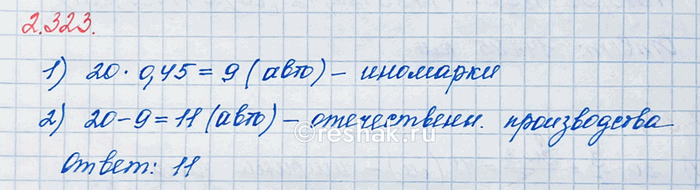 2.323.
1) 20 · 0,45 = 9 (авто) - иномарки
2) 20 - 9 = 11 (авто) - отечественн. производства
Ответ: 11
reshak.ru